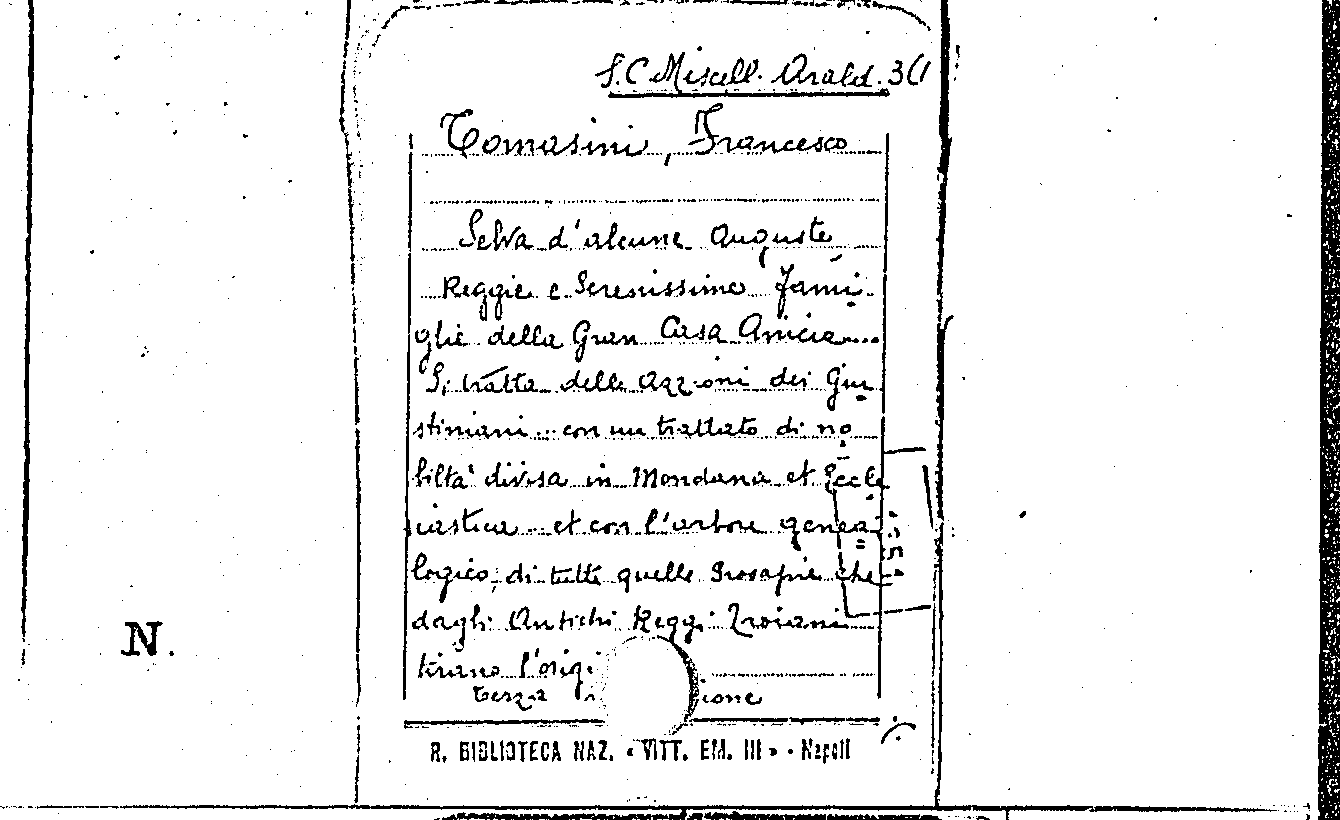 S. C. Miscell. Arald. 3
Tomasini, Francesco
Selva d'alcune Auguste,
Reggie e Serenissime Fami
glie della Gran Casa Anicia....
Si tratta delle Azzioni dei Giu
stiniani... con un trattato di no
biltà divisa in Mondana et Eccle
siastica... et con l'arbore genea
logico, di tutte quelle Prosapie che
dagli Antichi Reggi Troiani
tirano l'origi
terza
ione
N.
R. BIBLIOTECA NAZ. « VITT. EM. III » - Napoli